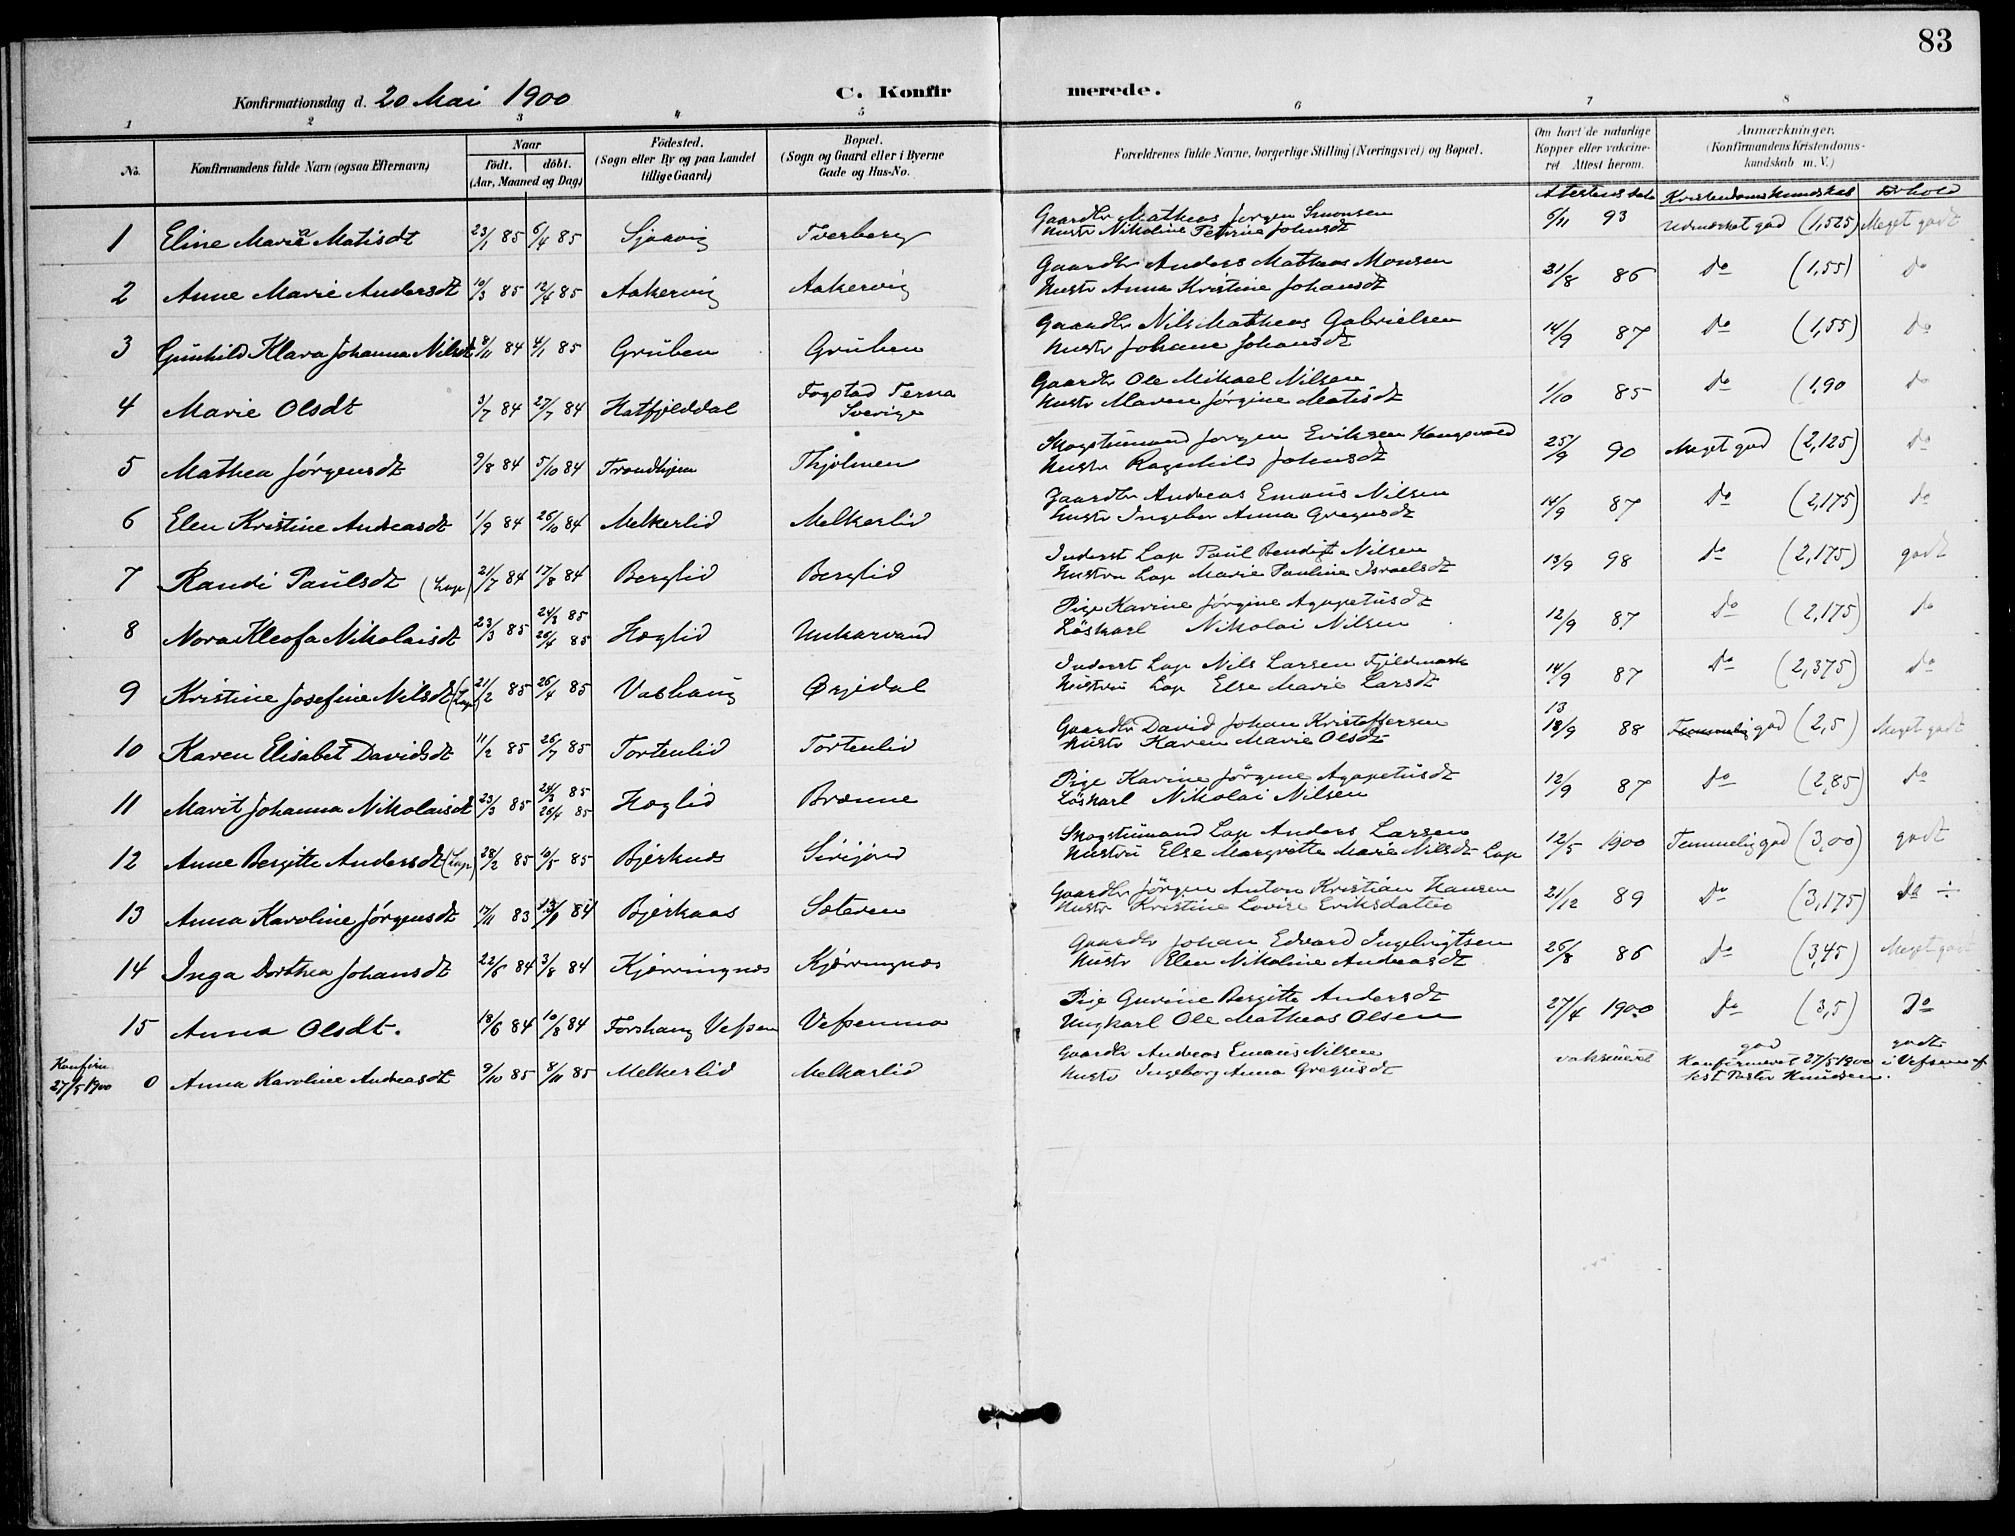 83
Konfirmationsdag d. 20 Mai 1900 C. Konfirmerede.
1 2 3 4 5 6 7 8
No. Konfirmandens fulde Navn (ogsaa Efternavn)
Naar
født. døbt.
(Aar, Maaned og Dag)
Födested.
(Sogn eller By og paa Landet
tillige Gaard)
Bopæl.
(Sogn og Gaard eller i Byerne
Gade og Hus-No.
Forældrenes fulde Navne, borgerlige Stilling (Næringsvei) og Bopæl.
Om havt de naturlige
Kopper eller vakcine-
ret Attest herom.
Anmærkninger.
(Konfirmandens Kristendoms-
kundskab m. V.)
Attestens dato Kristendomskundskab Forhold
1 Eline Maria Matisdt 23/1 85 6/4 85 Sjaavig Tverberg Gaardbr Matheas Jørgen Simonsen
Hustr Nikoline Petrine Johnsdt 6/11 93 Udmærket god (1,525) Meget godt
2 Anne Marie Andersdt 10/3 85 12/4 85 Aakervig Aakervig Gaardbr Anders Matheas Monsen
Hustr Anna Kristine Johansdt 31/8 86 do (1,55) do
3 Gunhild Klara Johanna Nilsdt 8/11 84 4/1 85 Gruben Gruben Gaardbr Nils Matheas Gabrielsen
Hustr Johane Johansdt 14/9 87 do (1,55) do
4 Marie Olsdt 3/7 84 27/7 84 Hatfjelddal Fogstad Terna
Sverige Gaardbr Ole Mikael Nilsen
Hustr Maren Jørgine Matisdt 1/10 85 do (1,90 do
5 Mathea Jørgensdt 9/8 84 5/10 84 Trondhjem Thjolmen Skogstuemand Jørgen Eriksen Kongsvold
Hustr Ragnhild Johnsdt 25/9 90 Meget god (2,125) do
6 Elen Kristine Andreasdt 1/9 84 26/10 84 Melkerlid Melkerlid Gaardbr Andreas Emaus Nilsen
Hustr Ingebor Anna Gregusdt 14/9 87 do (2,175) do
7 Randi Paulsdt (Lap) 21/7 84 17/8 84 Berglid Berglid Inderst Lap Paul Bendigt Nilsen
Hustru Lap Marie Pauline Israelsdt 13/9 98 do (2,175) godt
8 Nora Kleofa Nikolaisdt 23/3 85 24/3 85
26/4 85 Hæglid Unkarvand Pige Karine Jørgine Agapetusdt
Löskarl Nikolai Nilsen 12/9 87 do (2,175) do
9 Kristine Josefine Nilsdt (Lap) 21/2 85 26/4 85 Vashaug Ørjedal Inderst Lap Nils Larsen Fjeldmark
Hustru Lap Else Marie Larsdt 14/9 87 do (2,375) do
10 Karen Elisabet Davidsdt 11/2 85 26/7 85 Tortenlid Tortenlid Gaardbr David Johan Kristoffersen
Hustr Karen Marie Olsdt 13
18/9 88 Temmelig god (2,5) Meget godt
11 Marit Johanna Nikolaisdt 23/3 85 24/3 85
26/4 85 Hæglid Brænne Pige Karine Jørgine Agapetusdt
Löskarl Nikolai Nilsen 12/9 87 do (2,85) do
12 Anne Bergitte Andersdt (Lap) 28/2 85 10/5 85 Bjerknæs Sirijord Skogstuemand Lap Anders Larsen
Hustru Else Margrette Marie Nilsdt Lap 12/5 1900 Temmelig god (3,00) godt
13 Anna Karoline Jørgensdt 17/11 83 13/1 84 Bjerkaas Sæteren Gaardbr Jørgen Anton Kristian Hansen
Hustr Kristine Lovise Eriksdatter 21/12 89 do (3,175) do ÷
14 Inga Dorthea Johansdt 22/6 84 3/8 84 Kjærringnes Kjærringnes Gaardbr Johan Edvard Ingebrigtsen
Hustr Elen Nikoline Andreasdt 26/8 86 do (3,45) Meget godt
15 Anna Olsdt. 18/6 84 10/8 84 Forshaug Vefsen Vefsenmo Pige Gurine Bergitte Andersdt
Ungkarl Ole Matheas Olsen 27/4 1900 do (3,5) Do
Konfirm
27/5 1900 0 Anna Karoline Andreasdt 9/10 85 8/11 85 Melkerlid Melkerlid Gaardbr Andreas Emaus Nilsen
Hustr Ingeborg Anna Gregusdt vaksineret god godt
Konfirmeret 27/5 1900 i Vefsen af
kst Pastor Knudsen.